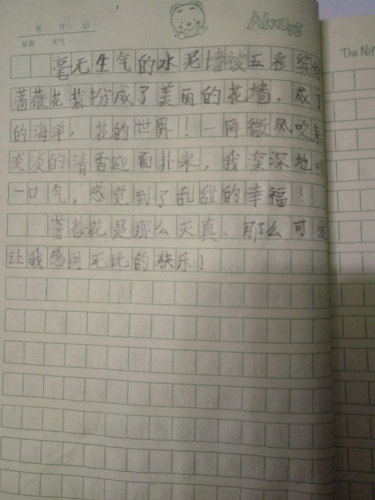 年 月 日
星期 天气
Always
The Nu
毫无生气的水泥墙被五彩缤纷
蔷薇花装扮成了美丽的花墙，成了
的海洋，花的世界！一阵微风吹来
淡淡的清香迎面扑来，我深深地吸
一口气，感觉到了甜甜的幸福！
蔷薇花是那么天真、那么可爱
让我感到无比的快乐！